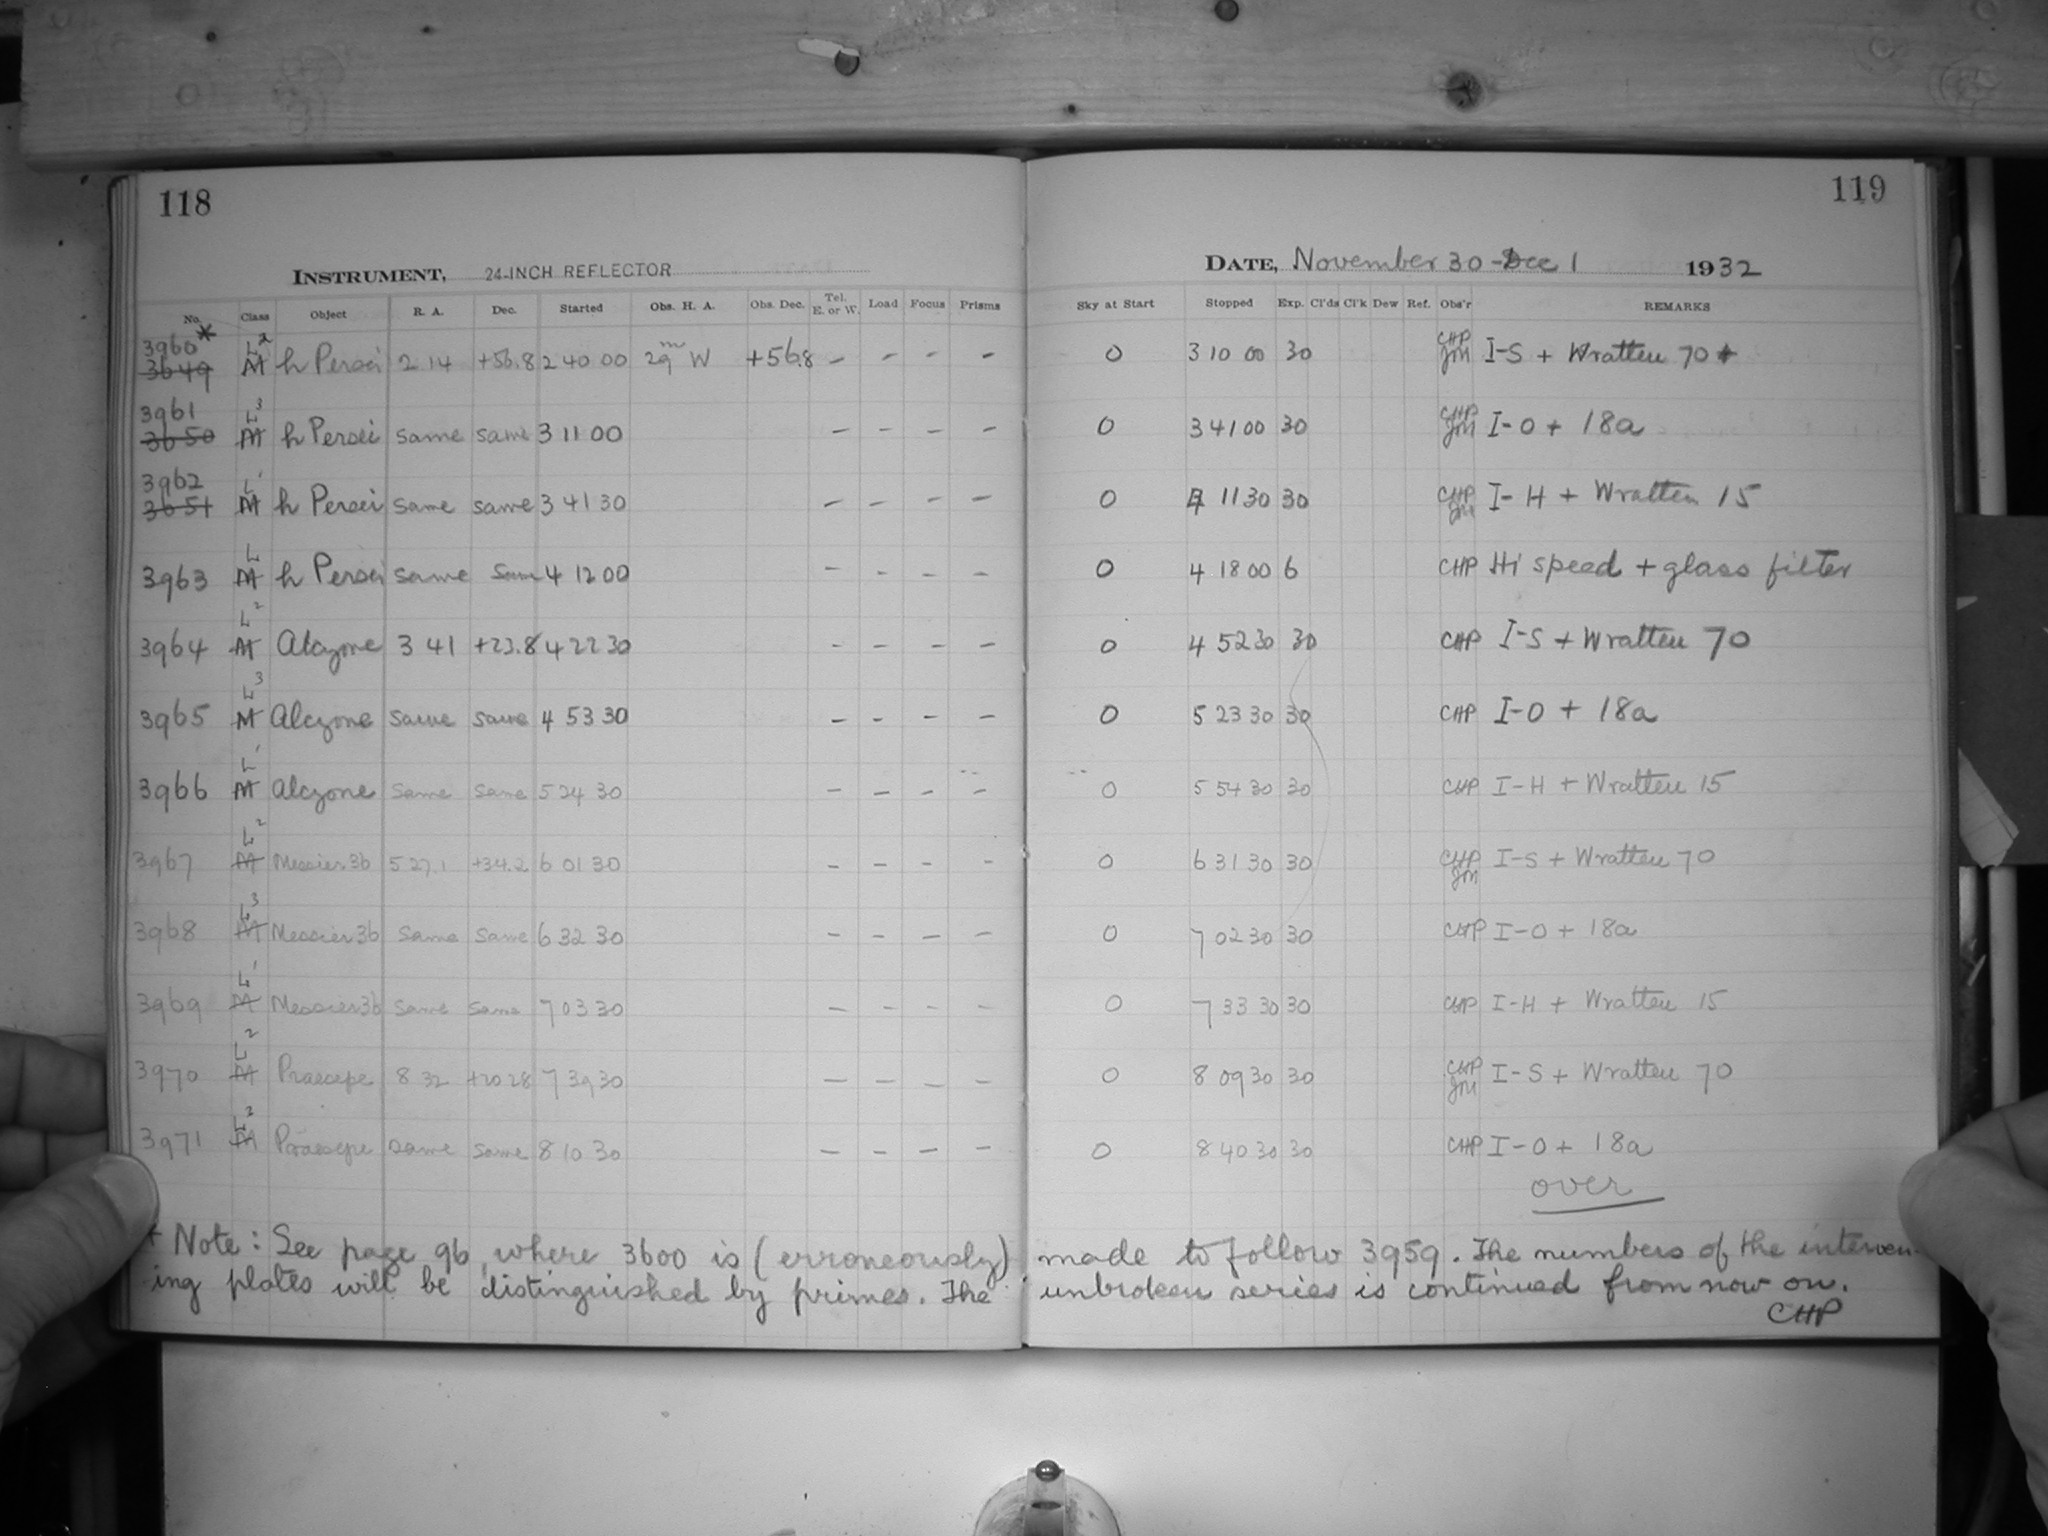 118
119
INSTRUMENT, 24-INCH REFLECTOR
DATE, November 30 - Dec 1 1932
No. Class Object R. A. Dec. Started Obs. H. A. Obs. Dec. Tel. E. or W. Load Focus Prisms Sky at Start Stopped Exp. Cl'ds Cl'k Dew Ref. Obs'r REMARKS
3960* L2
3649 M h Persei 2 14 +56.8 2 40 00 29m W +56.8 – – – – 0 3 10 00 30 CHP JM I-S + Wratten 70
3961 L3
3650 M h Persei same same 3 11 00 – – – – 0 3 41 00 30 CHP JM I-O + 18a
3962 L1
3651 M h Persei same same 3 41 30 – – – – 0 4 11 30 30 CHP JM I-H + Wratten 15
3963 L M h Persei same same 4 12 00 – – – – 0 4 18 00 6 CHP Hi speed + glass filter
3964 L2 M Alcyone 3 41 +23.8 4 22 30 – – – – 0 4 52 30 30 CHP I-S + Wratten 70
3965 L3 M Alcyone same same 4 53 30 – – – – 0 5 23 30 30 CHP I-O + 18a
3966 L1 M Alcyone same same 5 24 30 – – – – 0 5 54 30 30 CHP I-H + Wratten 15
3967 L2 M Messier 36 5 27.1 +34.2 6 01 30 – – – – 0 6 31 30 30 CHP JM I-S + Wratten 70
3968 L3 M Messier 36 same same 6 32 30 – – – – 0 7 02 30 30 CHP I-O + 18a
3969 L1 M Messier 36 same same 7 03 30 – – – – 0 7 33 30 30 CHP I-H + Wratten 15
3970 L2 M Praesepe 8 32 +20 28 7 39 30 – – – – 0 8 09 30 30 CHP JM I-S + Wratten 70
3971 L3 M Praesepe same same 8 10 30 – – – – 0 8 40 30 30 CHP I-O + 18a
over
* Note: See page 96, where 3600 is (erroneously) made to follow 3959. The numbers of the interven-
ing plates will be distinguished by primes. The unbroken series is continued from now on.
CHP